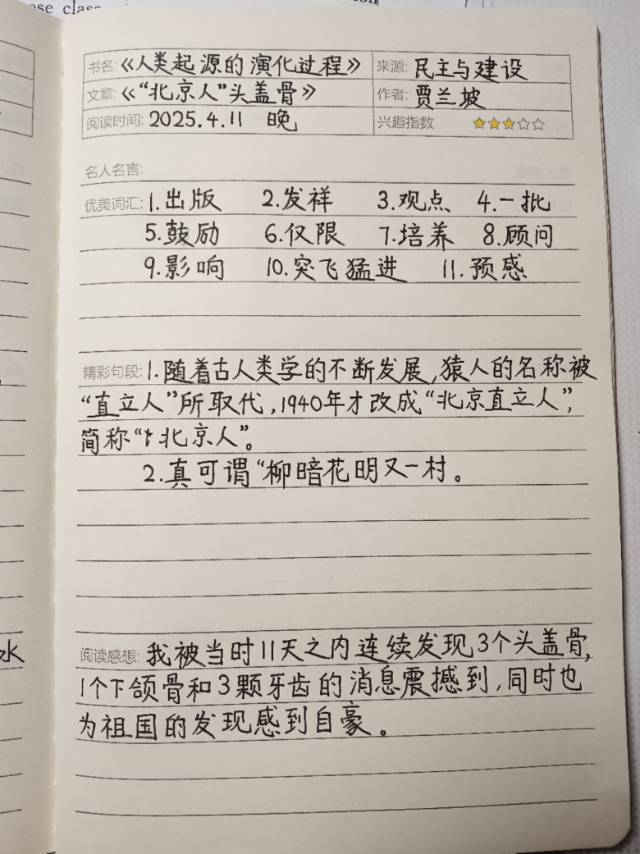 ose class
书名:《人类起源的演化过程》 来源: 民主与建设
文章:《“北京人”头盖骨》 作者: 贾兰坡
阅读时间: 2025.4.11 晚 兴趣指数 ★★★☆☆
名人名言:
优美词汇: 1.出版 2.发祥 3.观点 4.一批
5.鼓励 6.仅限 7.培养 8.顾问
9.影响 10.突飞猛进 11.预感
精彩句段: 1.随着古人类学的不断发展,猿人的名称被
“直立人”所取代,1940年才改成“北京直立人”,
简称“北京人”。
2.真可谓“柳暗花明又一村。
阅读感想: 我被当时11天之内连续发现3个头盖骨,
1个下颌骨和3颗牙齿的消息震撼到,同时也
为祖国的发现感到自豪。
水